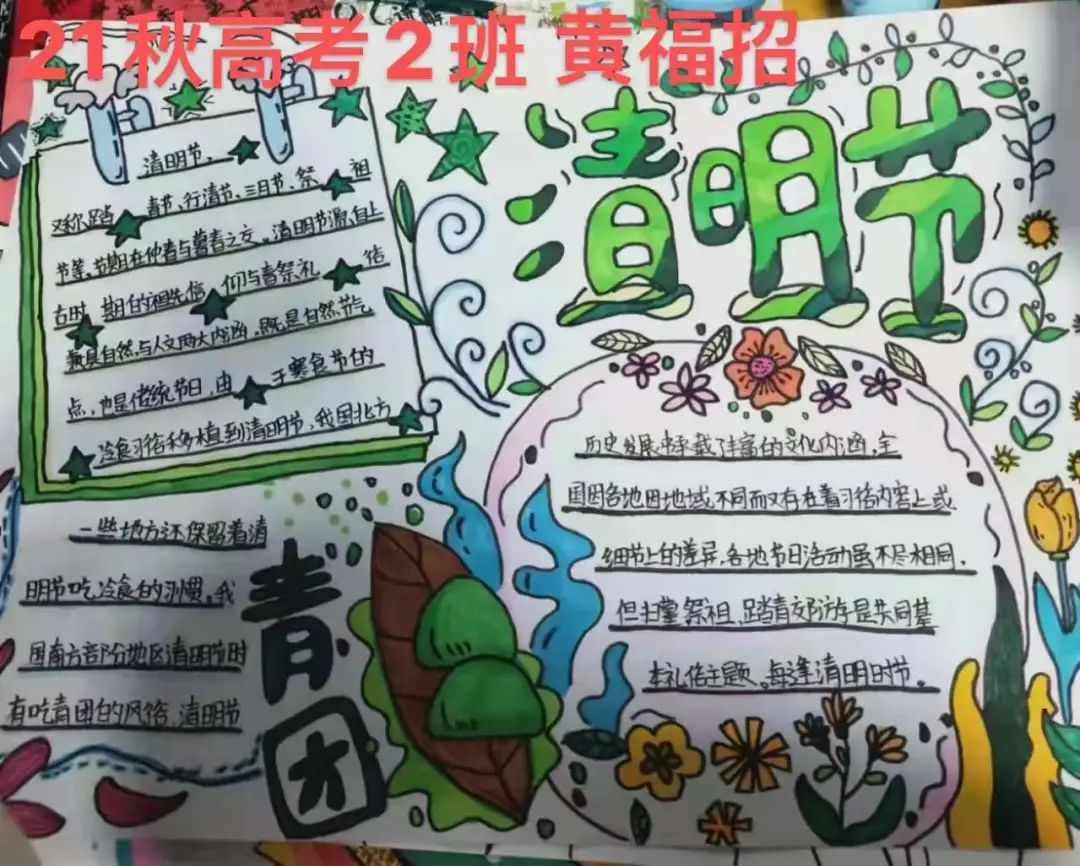 21秋高考2班 黄福招
清明节
清明节,
又称踏青节、行清节、三月节、祭祖
节等,节期在仲春与暮春之交。清明节源自上
古时期的祖先信仰与春祭礼俗
兼具自然与人文两大内涵,既是自然节气
点,也是传统节日,由于寒食节的
冷食习俗移植到清明节,我国北方
一些地方还保留着清
明节吃冷食的习惯。我
国南方部份地区清明节时
有吃青团的风俗,清明节
青团
历史发展中承载了丰富的文化内涵,全
国因各地因地域不同而又存在着习俗内容上或
细节上的差异,各地节日活动虽不尽相同,
但扫墓祭祖、踏青郊游是共同基
本礼俗主题。每逢清明时节。